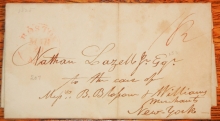 Nathan Lazell Jr Esqr
to the care of
Messrs B. Blossom & Williams
Merchants
New York